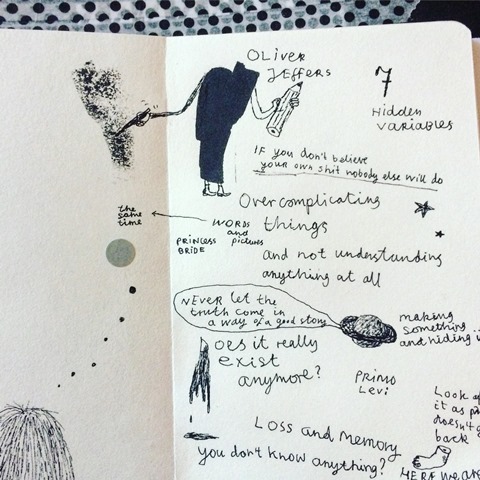 OLIVER
JEFFERS
7
Hidden
variables
IF you don't believe
your own shit nobody else will do
Overcomplicating
things
and not understanding
anything at all
the
same
time
WORDS
and
pictures
PRINCESS
BRIDE
NEVER let the
truth come in
a way of a good story
making
something
and hiding
Does it really
exist
anymore?
PRIMO
Levi
Look
it as
doesn't
back
Loss and Memory
you don't know anything?
HERE we are